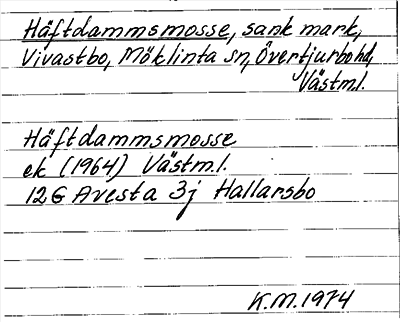 Häftdammsmosse, sank mark,
Vivastbo, Möklinta sn, Övertjurbo hd,
Västml.
Häftdammsmosse
ek (1964) Västml.
12G Avesta 3j Hallarsbo
K.M.1974